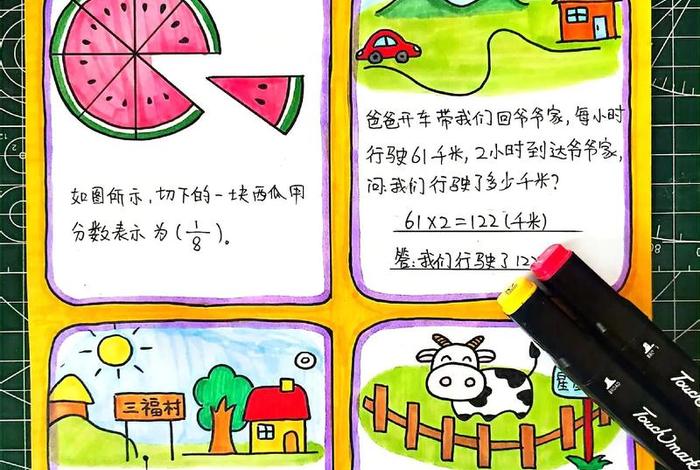 如图所示,切下的一块西瓜用
分数表示为(1/8)。
爸爸开车带我们回爷爷家,每小时
行驶61千米,2小时到达爷爷家,
问:我们行驶了多少千米?
61×2=122(千米)
答:我们行驶了12
三福村
星
Touch mark
Touch